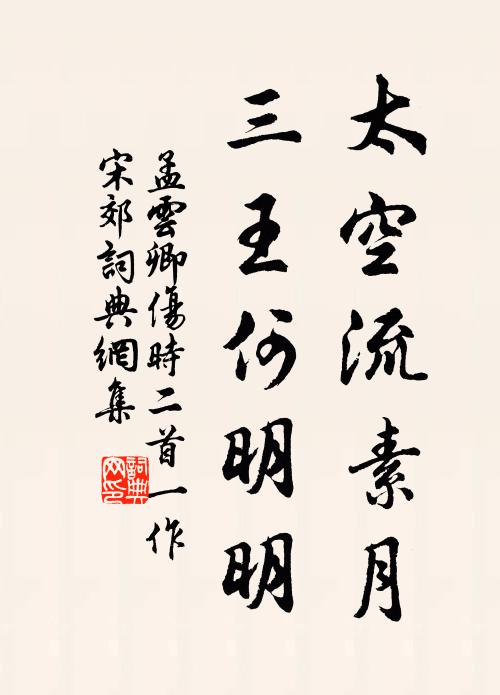 太空流素月
三五何明明
孟雲卿傷時二首一作
宋郊詞典網集
詞典
网印